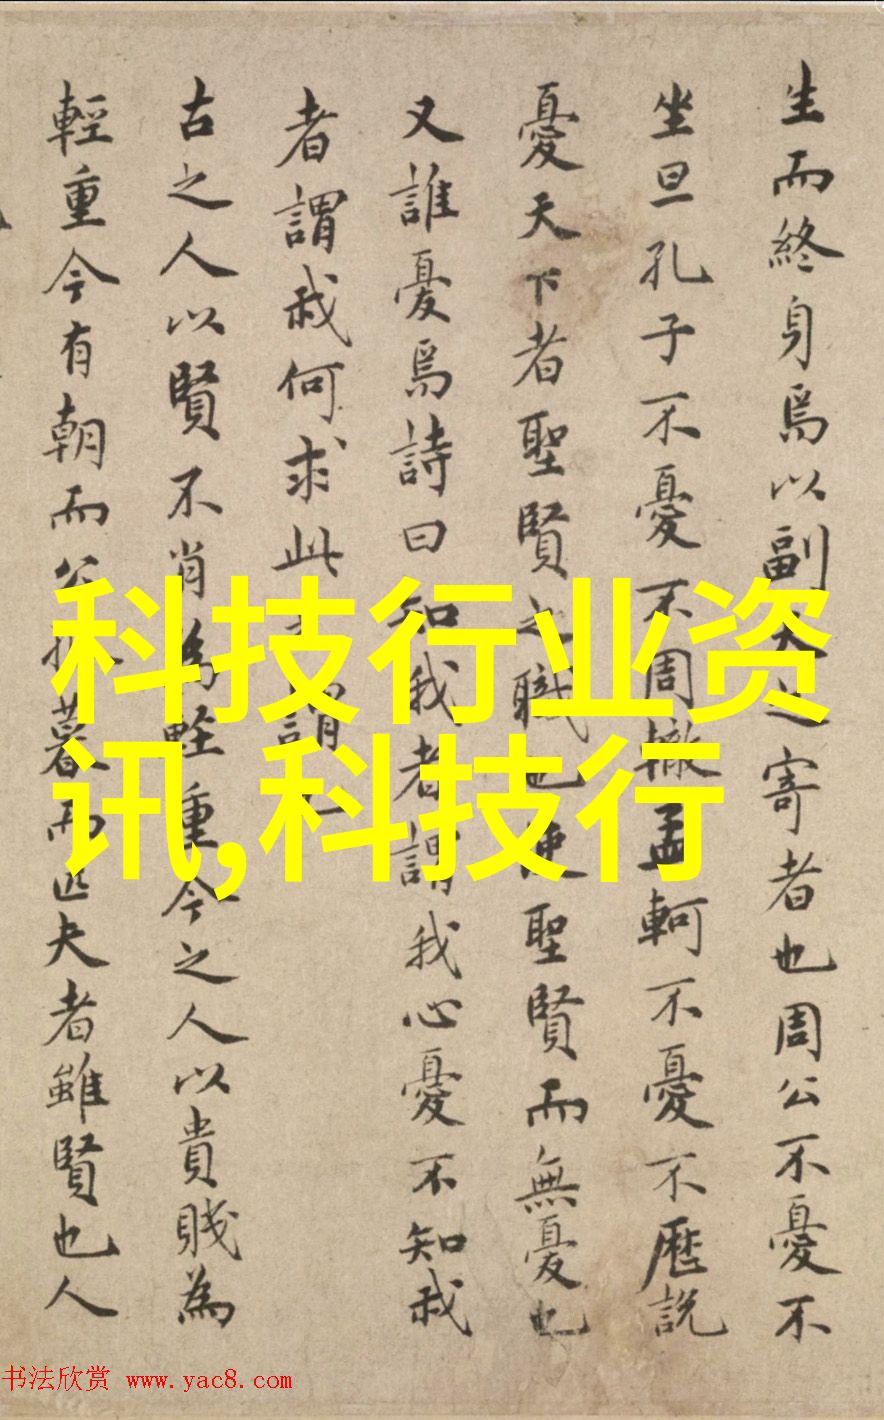 生而終身焉以副天之寄者也周公不憂不
坐旦孔子不憂不周轍孟軻不憂不歷說
憂天下者聖賢之職也使聖賢而無憂也
又誰憂焉詩曰知我者謂我心憂不知我
者謂我何求此謂
古之人以賢不肖為輕重今之人以貴賤為
輕重今有朝而公暮而匹夫者雖賢也人
科技行业资
讯,科技行
书法欣赏 www.yac8.com